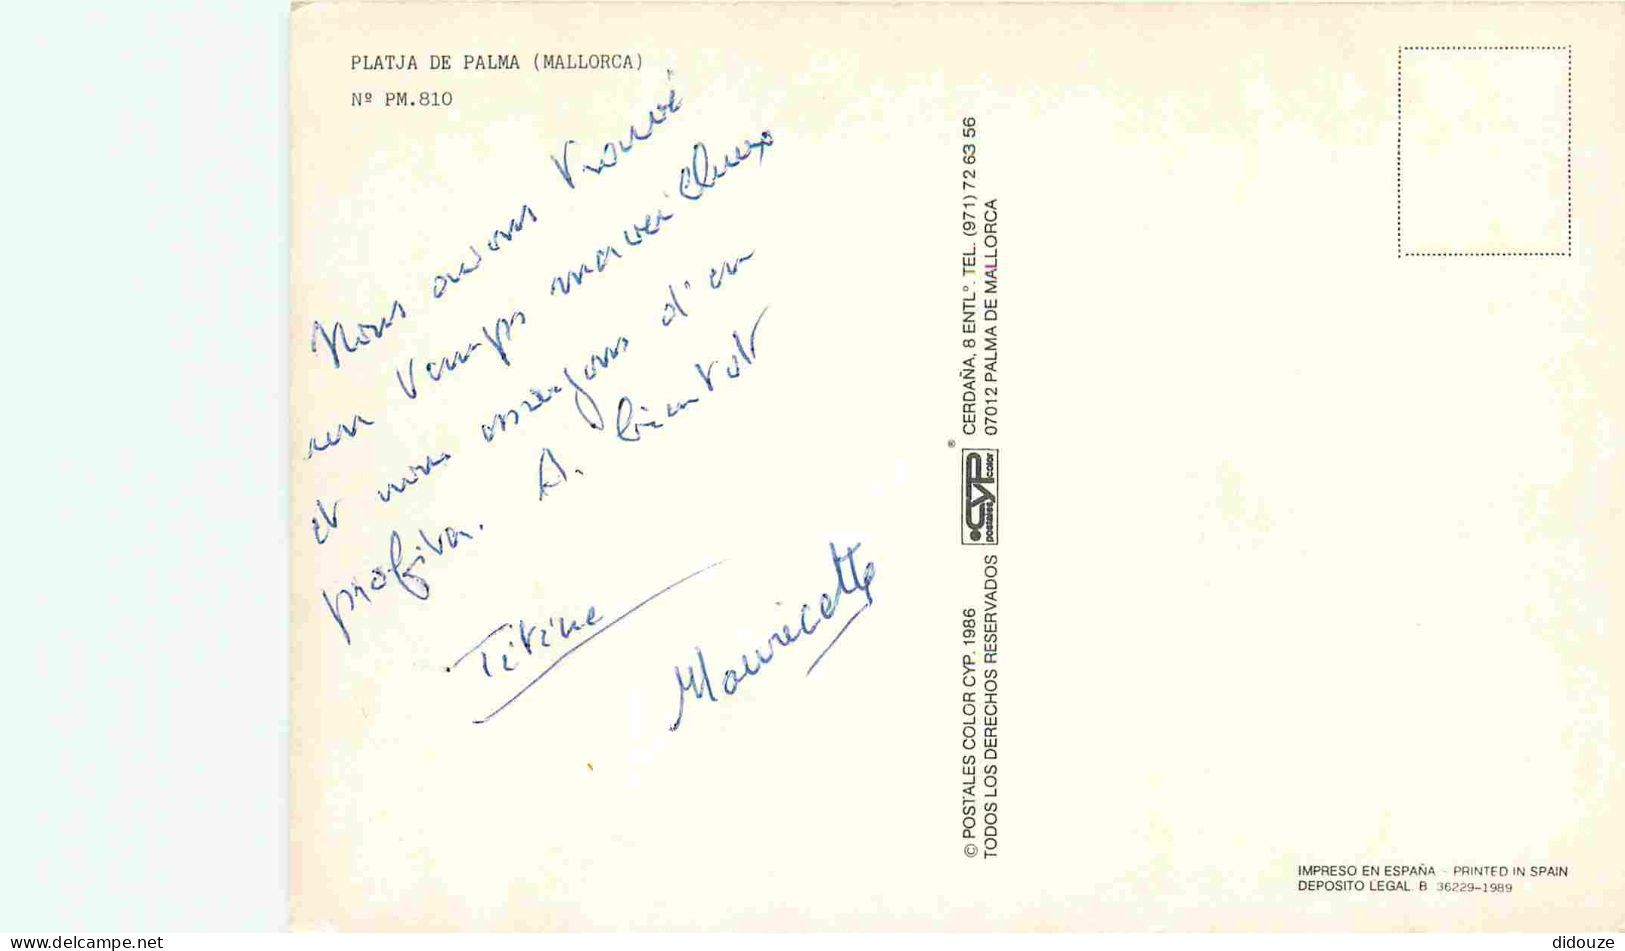 PLATJA DE PALMA (MALLORCA)
Nº PM.810
Nous avons trouvé
un temps merveilleux
et nous essayons d'en
profiter. A bientôt
Titine
Mauricette
© POSTALES COLOR CYP. 1986
TODOS LOS DERECHOS RESERVADOS
CYP
postales color
®
CERDAÑA, 8 ENTLº. TEL. (971) 72 63 56
07012 PALMA DE MALLORCA
IMPRESO EN ESPAÑA - PRINTED IN SPAIN
DEPOSITO LEGAL. B 36229-1989
https://www.delcampe.net
didouze